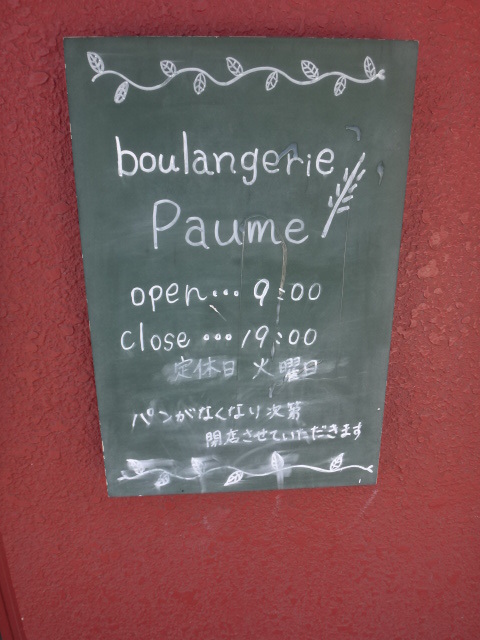 boulangerie
Paume
open… 9:00
close …19:00
定休日 火曜日
パンがなくなり次第
閉店させていただきます